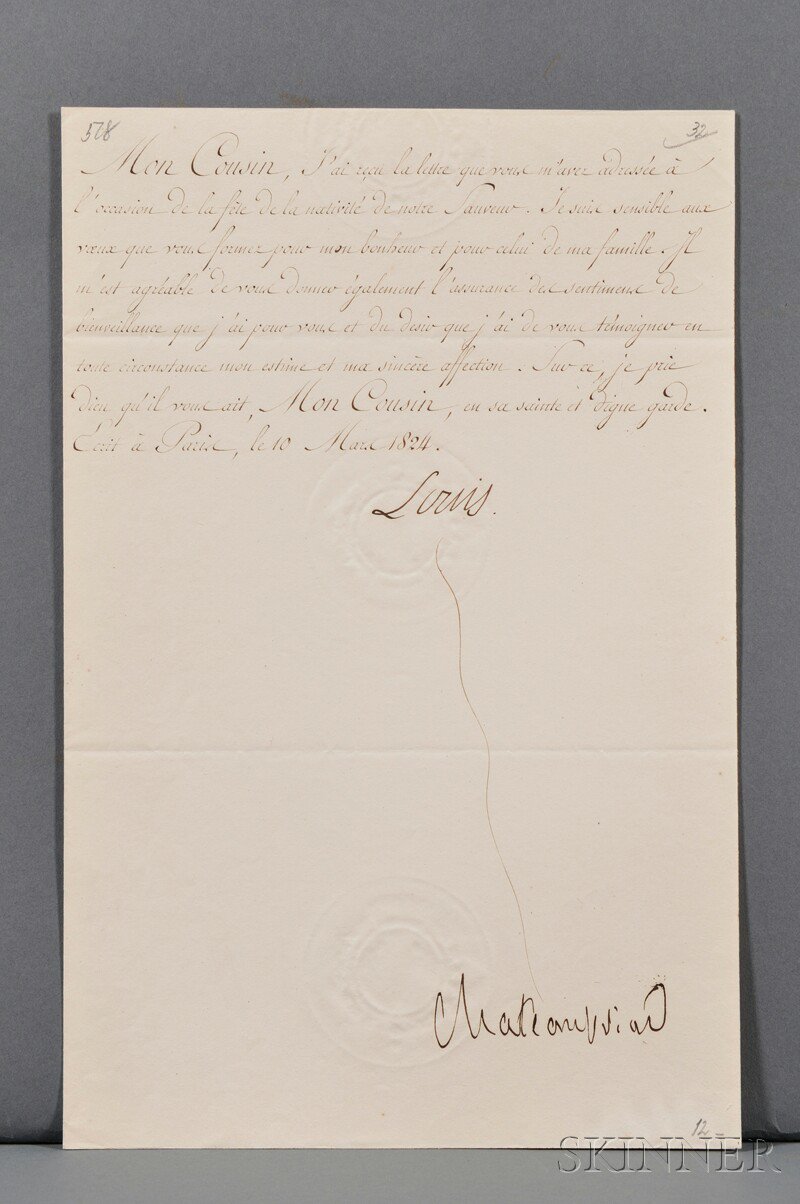 578
32
Mon Cousin, J'ai reçu la lettre que vous m'avez adressée à
l'occasion de la fête de la nativité de notre Sauveur. Je suis sensible aux
vœux que vous formez pour mon bonheur et pour celui de ma famille. Il
m'est agréable de vous donner également l'assurance des sentimens de
bienveillance que j'ai pour vous et du désir que j'ai de vous témoigner en
toute circonstance mon estime et ma sincère affection. Sur ce, je prie
Dieu qu'il vous ait, Mon Cousin, en sa sainte et digne garde.
Ecrit à Paris, le 10 Mars 1824.
Louis.
Chateaubriand
12
SKINNER